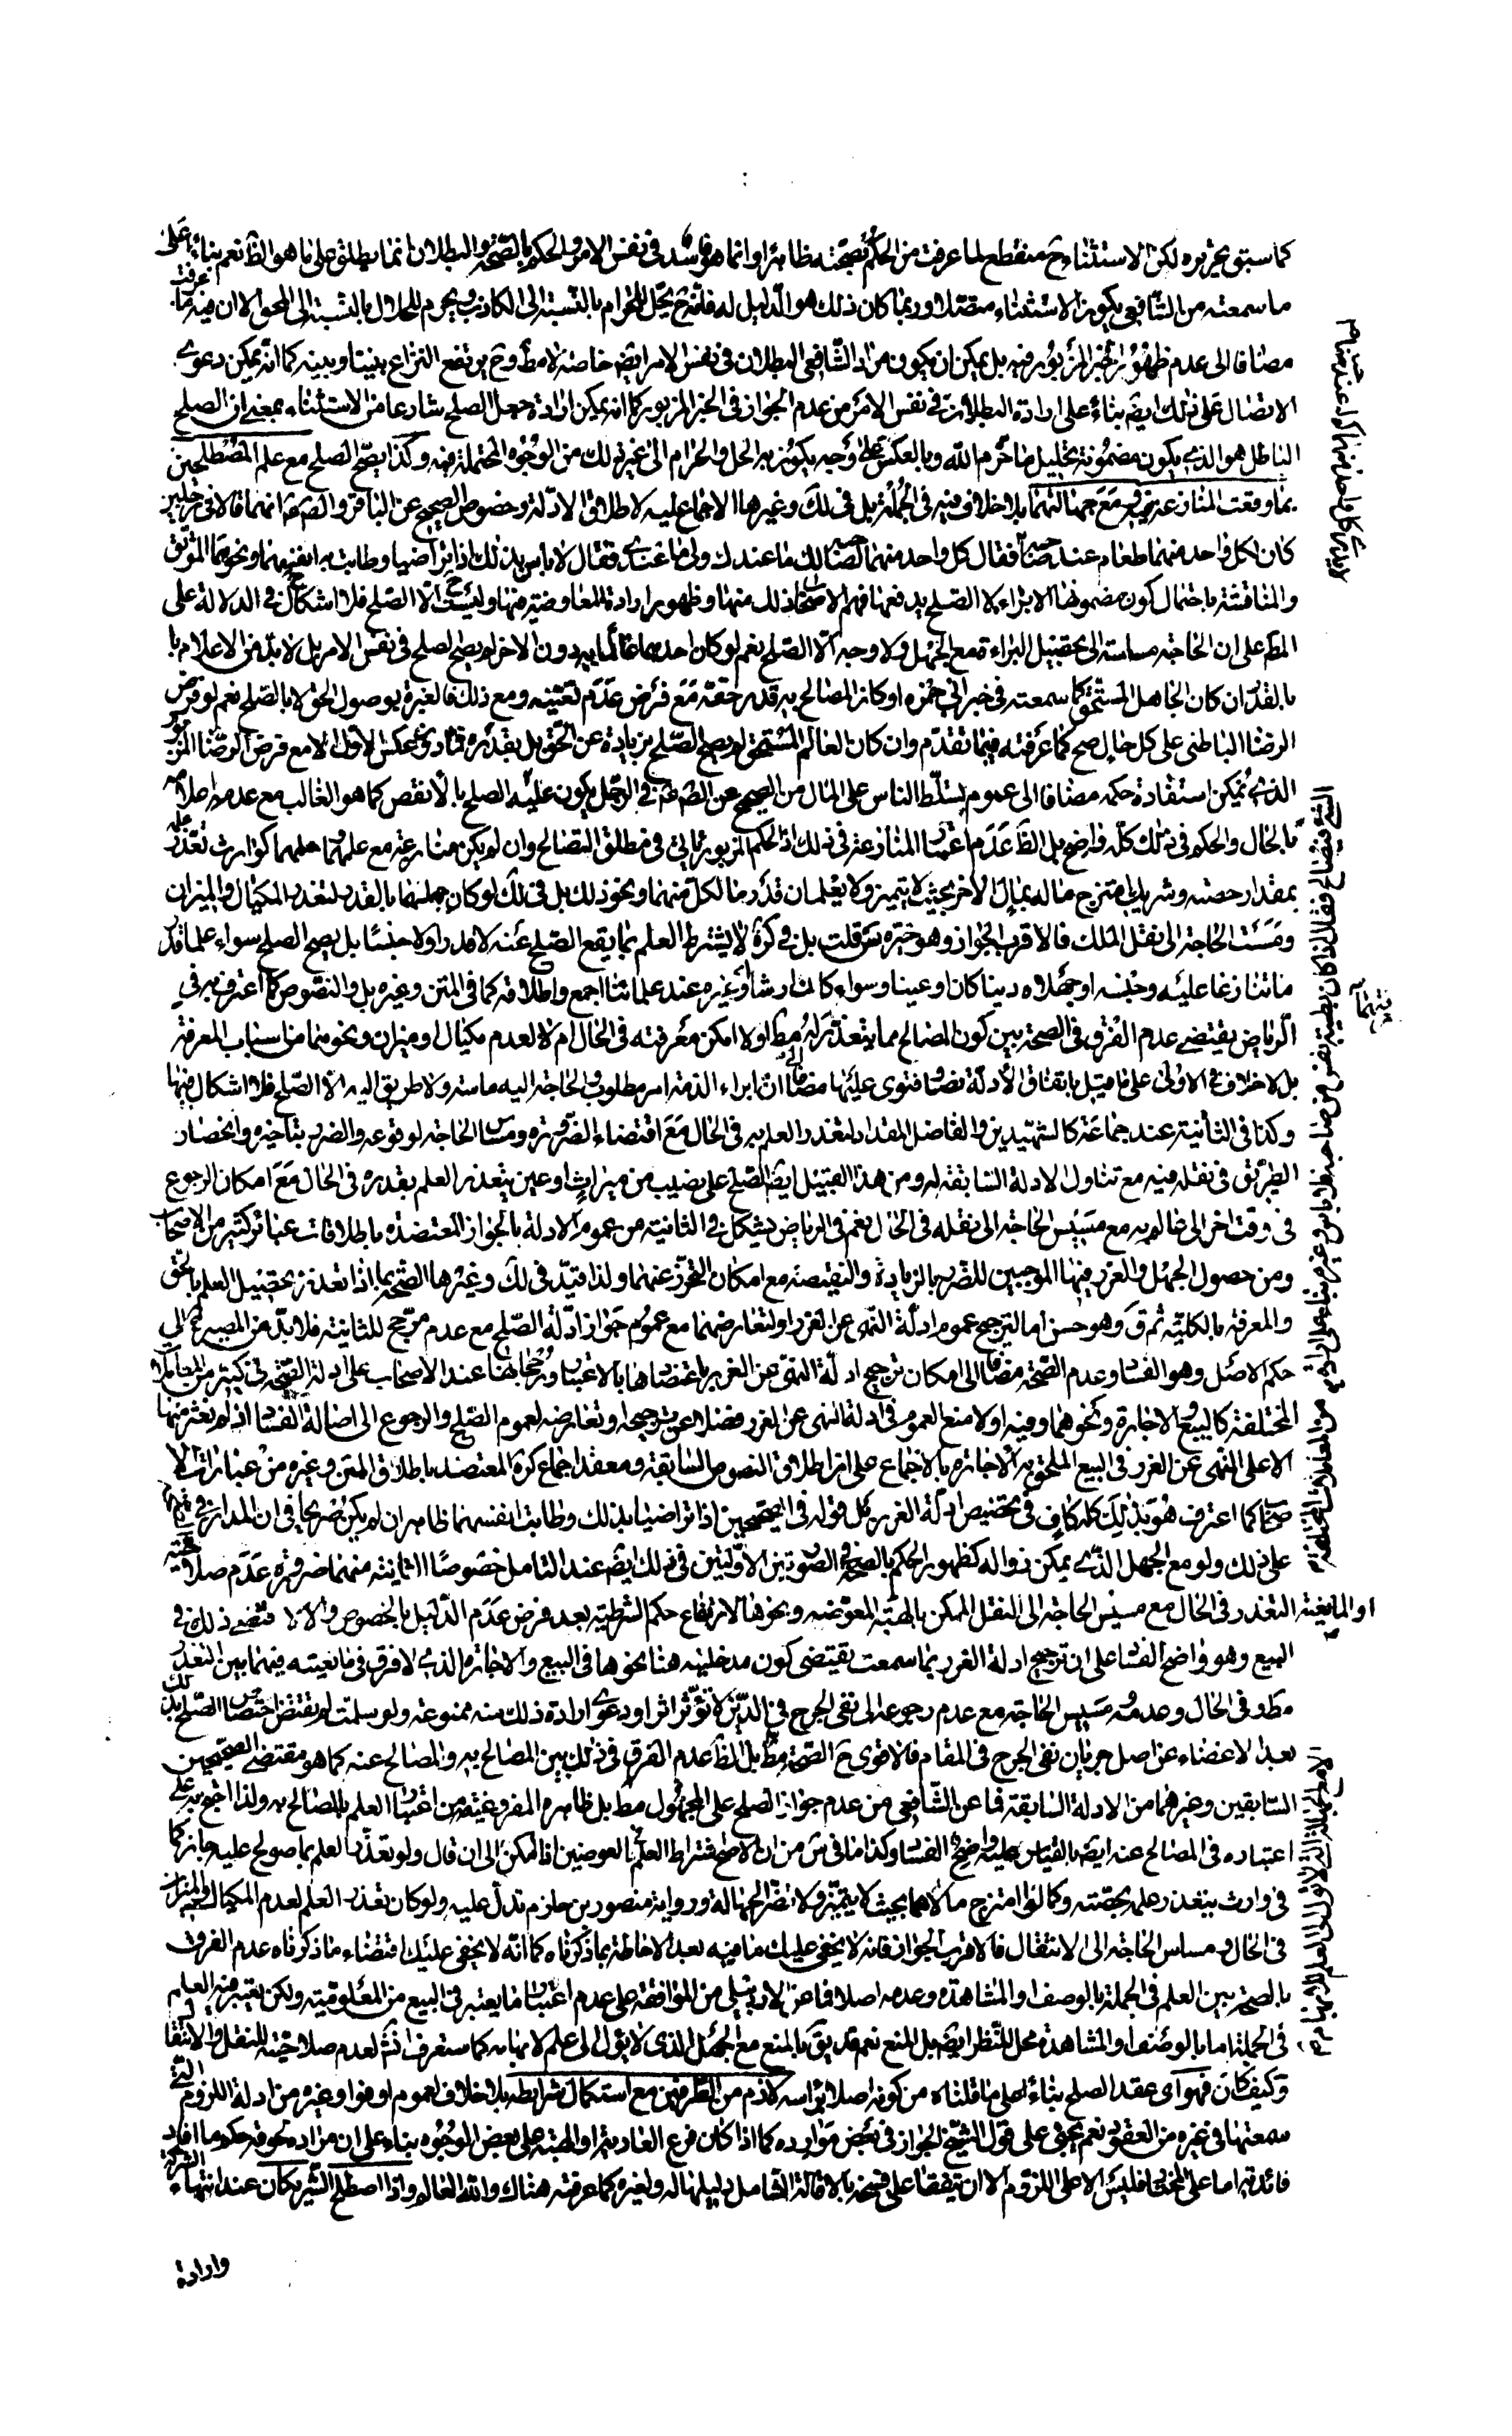 كما سبق تحريره لكن الاستثناء ح منقطع لما عرفت من الحكم بصحته ظاهرا وانما هو فاسد فى نفس الامر والحكم بالصحة والبطلان انما يطلق على ما هو الظ نعم بناء على
ما سمعته من الشافعى يكون الاستثناء متصلا وربما كان ذلك هو الدليل له فانه ح يحل الحرام بالنسبة الى الكاذب ويحرم الحلال بالنسبة الى المحق الا ان فيه ما عرفت
مضافا الى عدم ظهور الخبر المزبور فيه بل يمكن ان يكون مراد الشافعى البطلان فى نفس الامر ايضا خاصة لا مط وح يرتفع النزاع بيننا وبينه كما انه يمكن دعوى
الاتصال على ذلك ايضا بناء على ارادة البطلان فى نفس الامر من عدم الجواز فى الخبر المزبور كما انه يمكن ارادة جعل الصلح شارعا من الاستثناء بمعنى ان الصلح
الباطل هو الذى يكون مضمونه تحليل ما حرم الله وبالعكس على وجه يكون به الحل والحرام الى غير ذلك من الوجوه المحتملة فيه وكذا يصح الصلح مع علم المصطلحين
بما وقعت المنازعة فيه ومع جهالتهما بلا خلاف فيه فى الجملة بل فى لك وغيرها الاجماع عليه لاطلاق الادلة وخصوص الصحيح عن الباقر والصادق انهما قالا فى رجلين
كان لكل واحد منهما طعام عند صاحبه فقال كل واحد منهما لصاحبه لك ما عندك ولى ما عندى فقال لا باس بذلك اذا تراضيا وطابت به انفسهما ونحوهما الموثق
والمناقشة باحتمال كون مضمونها الابراء لا الصلح يدفعها فهم الاصحاب ذلك منها وظهور ارادة المعاوضة منها وليست ح الا الصلح فلا اشكال فى الدلالة على
المط على ان الحاجة ماسة الى تحصيل البراءة مع الجهل ولا وجه الا الصلح نعم لو كان احدهما عالما به دون الاخر لم يصح الصلح فى نفس الامر بل لا بد من الاعلام با
بالقدر ان كان الجاهل المستحق كما سمعته فى خبر ابى حمزه او كان المصالح به قدر حقه مع فرض عدم تعينه ومع ذلك فالعبرة بوصول الحق لا بالصلح نعم لو فرض
الرضا الباطنى على كل حال صح كما عرفته فيما تقدم وان كان العالم المستحق لم يصح الصلح بزيادة عن الحق بل بقدره فما دون عكس الاول الا مع فرض الرضا المزبور
الذى يمكن استفادة حكمه مضافا الى عموم تسلط الناس على المال من الصحيح عن الصادق فى الرجل يكون عليه الصلح بالانقص كما هو الغالب مع عدم اعلامه
بالحال والحكم فى ذلك كله واضح بل الظ عدم اعتبار المنازعة فى ذلك اذ الحكم المزبور ياتى فى مطلق التصالح وان لم يكن منازعة مع علمهما وجهلهما كوارث تعذر علمه
بمقدار حصته وشريك امتزج ماله بمال الاخر بحيث لا يتميز ولا يعلمان قدر ما لكل منهما ونحو ذلك بل فى لك لو كان جهلهما بالقدر لتعذر المكيال والميزان
ومست الحاجة الى نقل الملك فالاقرب الجواز وهو خيرة س قلت بل فى كرة لا يشترط العلم بما يقع الصلح عنه لا قدرا ولا جنسا بل يصح الصلح سواء علما قدر
ما تنازعا عليه وجنسه او جهلاه دينا كان او عينا وسواء كان ارشا او غيره عند علمائنا اجمع واطلاقه كما فى المتن وغيره بل والنصوص كما اعترف به فى
الرياض يقتضى عدم الفرق فى الصحة بين كون المصالح مما يتعذر له مط او لا امكن معرفته فى الحال ام لا لعدم مكيال وميزان ونحوهما من اسباب المعرفة
بل لا خلاف فى الاولى على ما قيل باتفاق الادلة نصا وفتوى عليها مضافا الى ان ابراء الذمة امر مطلوب والحاجة اليه ماسة ولا طريق اليه الا الصلح فلا اشكال فيها
وكذا فى الثانية عند جماعة كالشهيدين والفاضل المقداد لتعذر العلم به فى الحال مع اقتضاء الضرورة ومساس الحاجة لوقوعه والضرر بتاخيره وانحصار
الطريق فى نقله فيه مع تناول الادلة السابقة له ومن هذا القبيل ايضا الصلح على نصيب من ميراث او عين يتعذر العلم بقدره فى الحال مع امكان الرجوع
فى وقت اخر الى عالم به مع مسيس الحاجة الى نقله فى الحال نعم فى الرياض يشكل فى الثانية من عموم الادلة بالجواز المعتضدة باطلاقات عبائر كثير من الاصحاب
ومن حصول الجهل والغرر فيها الموجبين للضرر بالزيادة والنقيصة مع امكان التحرز عنهما ولذا قيد فى لك وغيرها الصحة بما اذا تعذر تحصيل العلم بالحق
والمعرفة بالكلية ثم ق وهو حسن اما لترجيح عموم ادلة النهى عن الغرر او لتعارضهما مع عموم جواز ادلة الصلح مع عدم مرجح للثانية فلا بد من المصير ح الى
حكم الاصل وهو الفساد وعدم الصحة مضافا الى امكان ترجيح ادلة النهى عن الغرر باعتضادها بالاعتبار ورجحانها عند الاصحاب على ادلة الصحة فى كثير من المعاملات
المختلفة كالبيع والاجارة ونحوهما وفيه اولا منع العموم فى ادلة النهى عن الغرر فضلا عن ترجيحها وتعارضه لعموم الصلح والرجوع الى اصالة الفساد اذ لم نعثر منها
الا على النهى عن الغرر فى البيع الملحق به الاجارة بالاجماع على ان اطلاق النصوص السابقة ومعقد اجماع كرة المعتضد باطلاق المتن وغيره من عبارات الا
صحاب كما اعترف هو بذلك كله كاف فى تخصيص ادلة الغرر بل قوله فى الصحيحين اذا تراضيا بذلك وطابت انفسهما ظاهر ان لم يكن صريحا فى ان المدار
على ذلك ولو مع الجهل الذى يمكن زواله كظهور الحكم بالصحة فى الصورتين الاولتين فى ذلك ايضا عند التامل خصوصا الثانية منهما ضرورة عدم صلاحية
او المانعية التعذر فى الحال مع مسيس الحاجة الى النقل الممكن بالهبة المعوضة ونحوها لارتفاع حكم الشرطية بعد فرض عدم الدليل بالخصوص والا لاقتضى ذلك فى
البيع وهو واضح الفساد على ان ترجيح ادلة الغرر بما سمعت يقتضى كون مدخليته هنا نحوها فى البيع والاجارة الذى لا فرق فى مانعيته فيهما بين التعذر
مط وفى الحال وعدمه ومسيس الحاجة مع عدم رجوعه الى نفى الحرج فى الدين لا تؤثر اثرا ودعوى ارادة ذلك منه ممنوعة ولو سلمت لم يقتض اختصاص الصلح بذلك
بعد الاغضاء عن اصل جريان نفى الحرج فى المقام فالاقوى ح الصحة مط بل الظ عدم الفرق فى ذلك بين المصالح به والمصالح عنه كما هو مقتضى الصحيحين
السابقين وغيرهما من الادلة السابقة فما عن الشافعى من عدم جواز الصلح على المجهول مط بل ظاهره المفروغية من اعتبار العلم بالمصالح به ولذا احتج به على
اعتباره فى المصالح عنه ايضا بالقياس عليه واضح الفساد وكذا ما فى س من ان الاصح اشتراط العلم بالعوضين اذا امكن الى ان قال ولو تعذر العلم بما صولح عليه جاز كما
فى وارث يتعذر علمه بحصته وكما لو امتزج مالاهما بحيث لا يتميز ولا تضر الجهالة ورواية منصور بن حازم تدل عليه ولو كان تعذر العلم لعدم المكيال والميزان
فى الحال ومساس الحاجة الى الانتقال فالاقرب الجواز فانه لا يخفى عليك ما فيه بعد الاحاطة بما ذكرناه كما انه لا يخفى عليك اقتضاء ما ذكرناه عدم الفرق
بالصحة بين العلم فى الجملة بالوصف او المشاهدة وعدمه اصلا فما عن الاردبيلى من الموافقة على عدم اعتبار ما يعتبر فى البيع من المعلومية ولكن يعتبر فيه العلم
فى الجملة اما بالوصف او المشاهدة محل للنظر ايضا بل للمنع نعم قد يق بالمنع مع الجهل الذى لا يؤل الى علم لابهامه كما ستعرف ثم لعدم صلاحيته للنقل والانتقا
وكيف كان فهو اى عقد الصلح بناء على ما قلناه من كونه اصلا براسه لازم من الطرفين مع استكمال شرائطه بلا خلاف لعموم اوفوا وغيره من ادلة اللزوم التى
سمعتها فى غيره من العقود نعم يجئ على قول الشيخ الجواز فى بعض موارده كما اذا كان فرع العارية او الهبة على بعض الوجوه بناء على ان مراده لحوقه حكم ما افاد
فائدته اما على المختار فليس الا على اللزوم الا ان يتفقا على فسخه بالاقالة الشامل دليلها له ولغيره كما عرفته هناك والله العالم واذا اصطلح الشريكان عند انتهاء الشركة
وارادة